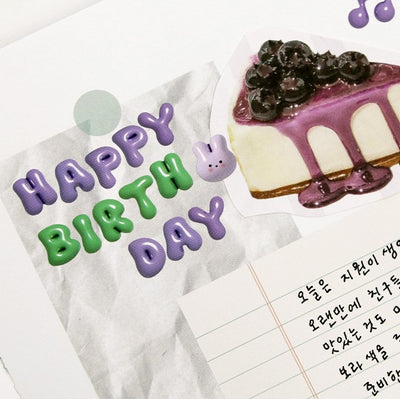 HAPPY
BIRTH
DAY
오늘은 지원이 생
오랜만에 친구들
맛있는 것도
보라색을
준비한